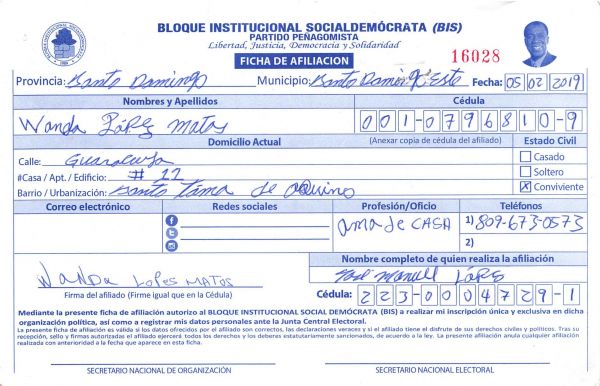 BLOQUE INSTITUCIONAL SOCIALDEMÓCRATA (BIS)
PARTIDO PEÑAGOMISTA
Libertad, Justicia, Democracia y Solidaridad
FICHA DE AFILIACION
16028
Provincia: Santo Domingo Municipio: Santo Domingo Este Fecha: 05 02 2019
Nombres y Apellidos Cédula
Wanda López Matos 001-0796810-9
Domicilio Actual (Anexar copia de cédula del afiliado) Estado Civil
Calle: Casado
#Casa / Apt. / Edificio: # 12 Soltero
Barrio / Urbanización: Santo Toma de Aquino X Conviviente
Correo electrónico Redes sociales Profesión/Oficio Teléfonos
ama de CASA 1) 809-673-0573
2)
Nombre completo de quien realiza la afiliación
Wanda Lopes Matos José Manuell López
Firma del afiliado (Firme igual que en la Cédula) Cédula: 223-0004729-1
Mediante la presente ficha de afiliación autorizo al BLOQUE INSTITUCIONAL SOCIAL DEMÓCRATA (BIS) a realizar mi inscripción única y exclusiva en dicha
organización política, así como a registrar mis datos personales ante la Junta Central Electoral.
La presente ficha de afiliación es válida si los datos ofrecidos por el afiliado son correctos, las declaraciones veraces y si el afiliado tiene el disfrute de sus derechos civiles y políticos. Tras su
recepción, sello y firmas autorizadas el afiliado ejercerá todos los derechos y los deberes estatutariamente sancionados, de acuerdo a la ley. La presente afiliación anula cualquier afiliación
realizada con anterioridad a la fecha que aparece en esta ficha.
SECRETARIO NACIONAL DE ORGANIZACIÓN SECRETARIO NACIONAL ELECTORAL